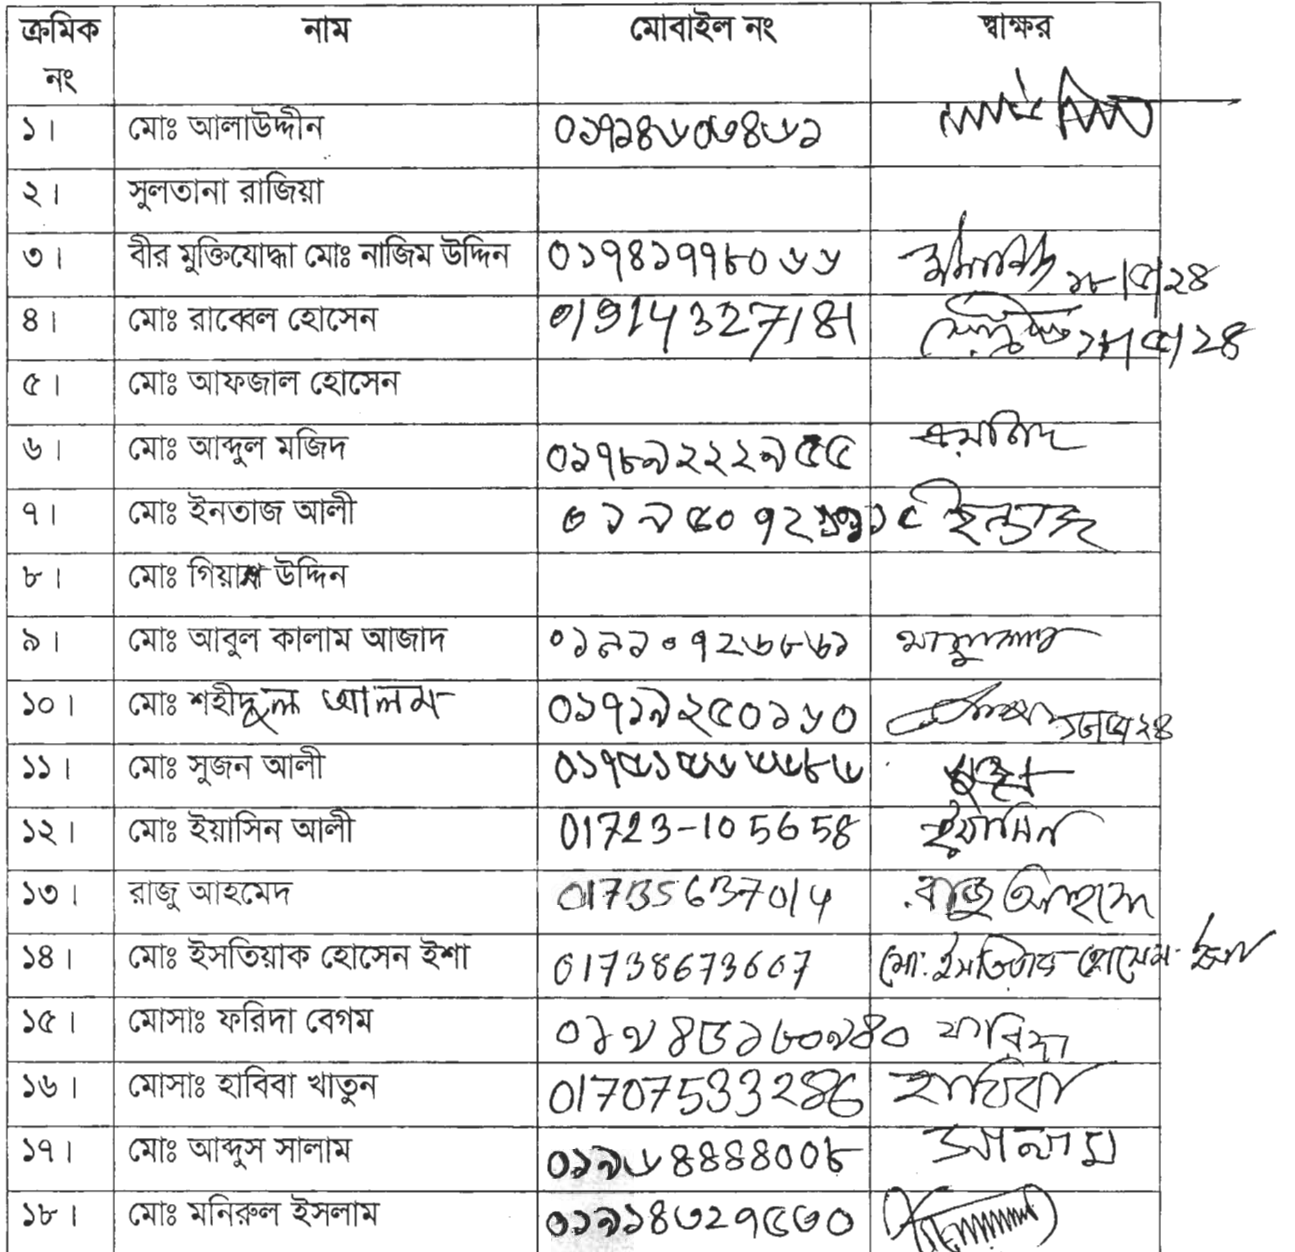 ক্রমিক নং নাম মোবাইল নং স্বাক্ষর
১। মোঃ আলাউদ্দীন ০১৭১৪৬০৩৪৬১
২। সুলতানা রাজিয়া
৩। বীর মুক্তিযোদ্ধা মোঃ নাজিম উদ্দিন ০১৭৪১৭৭৮০৬৬ ১৮/৫/২৪
৪। মোঃ রাব্বেল হোসেন 01914327181 ১৮/৫/২৪
৫। মোঃ আফজাল হোসেন
৬। মোঃ আব্দুল মজিদ ০১৭৮৯২২২৯৫৫
৭। মোঃ ইনতাজ আলী ইন্তাজ
৮। মোঃ গিয়াস উদ্দিন
৯। মোঃ আবুল কালাম আজাদ ০১৯১০৭২৬৮৬১
১০। মোঃ শহীদুল আলম ০১৭১৯২৫০১৬০
১১। মোঃ সুজন আলী
১২। মোঃ ইয়াসিন আলী 01723-105658 ইয়াসিন
১৩। রাজু আহমেদ 01735637014 রাজু আহমেদ
১৪। মোঃ ইসতিয়াক হোসেন ইশা 01738673607 মো: ইসতিয়াক হোসেন ইশা
১৫। মোসাঃ ফরিদা বেগম ফরিদা
১৬। মোসাঃ হাবিবা খাতুন 01707533286 হাবিবা
১৭। মোঃ আব্দুস সালাম ০১৯৬৪৪৪৪০০৮ সালাম
১৮। মোঃ মনিরুল ইসলাম ০১৯১৪৩২৭৫৩০